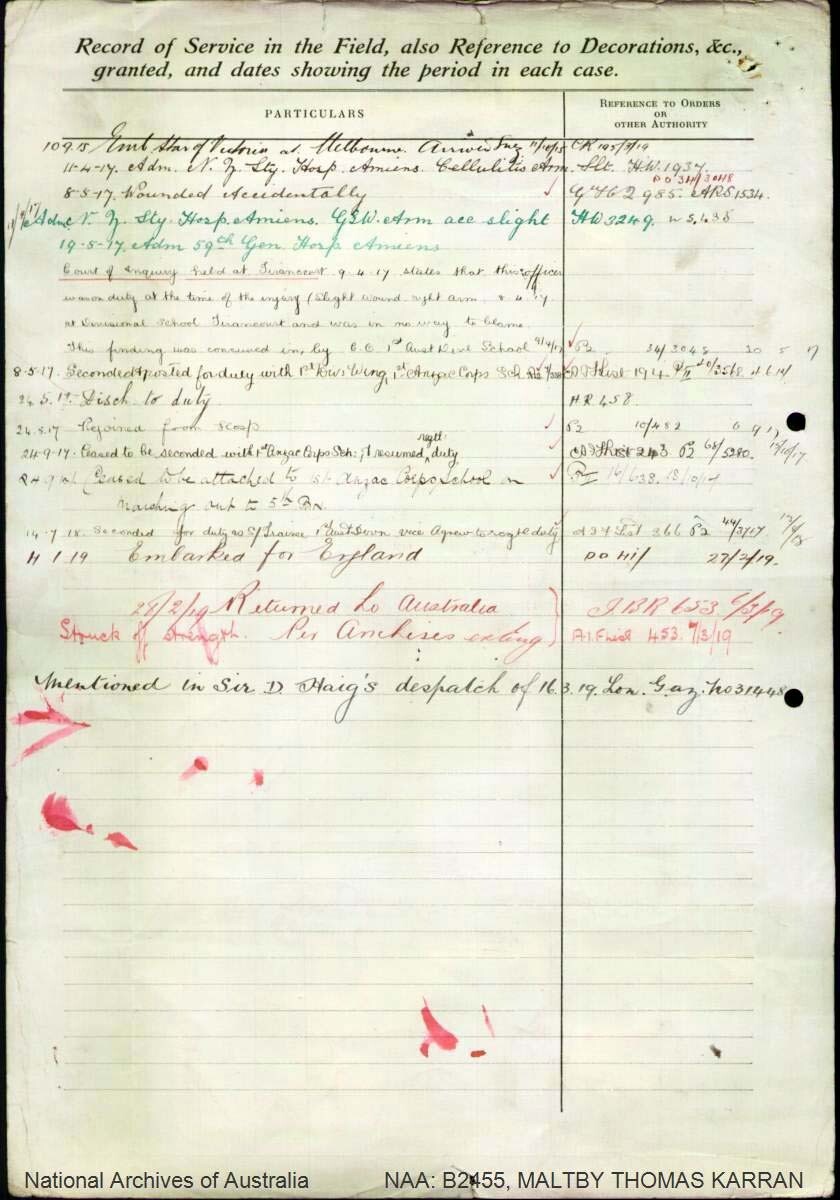 Record of Service in the Field, also Reference to Decorations, &c.,
granted, and dates showing the period in each case.
PARTICULARS
REFERENCE TO ORDERS
OR
OTHER AUTHORITY
10 9.15 Emb Star of Victoria at Melbourne. Arrived Suez 11/10/15 CR 195/3/19
11-4-17. Adm. N. Z. Sty. Hosp. Amiens. Cellulitis Arm Slt. H.W. 1937.
8-5-17. Wounded Accidentally 985. 1534.
Adm N. Z. Sty. Hosp. Amiens. GSW. Arm acc slight HW 3249.
19-5-17. Adm 59th Gen. Hosp Amiens
Court of Inquiry held at Tirancourt 9.4.17 states that this officer
was on duty at the time of the injury (Slight wound right arm 8.4.17
at Divisional School Tirancourt and was in no way to blame
This finding was concurred in, by C.O. 1st Aust Divl School 9/4/17 P2 34/3048 30 5 17
8-5-17. Seconded & posted for duty with Wing, 1st Anzac Corps Sch. 194
24.5.17. Disch. to duty HR 458
24.5.17 Rejoined from Hosp P2 10/482 6 9 17
24-9-17. Ceased to be seconded with 1st Anzac Corps Sch: & resumed regtl. duty 243 P2 68/5280. 15/10/17
(Ceased to be attached to 1st Anzac Corps School on 16/638. 18/10/17
marching out to 5th Bn.
14-7-18. Seconded for duty as S/Trainee 1st Aust Divn vice Agnew to regtl duty 366 P2 44/3717
11 1 19 Embarked for England DO 27/2/19.
28/2/19 Returned to Australia 653 6/3/19
Struck off strength. Per Anchises exting A.I.F. list 453. 7/3/19
Mentioned in Sir D. Haig's despatch of 16.3.19. Lon. Gaz. No 31448
National Archives of Australia NAA: B2455, MALTBY THOMAS KARRAN